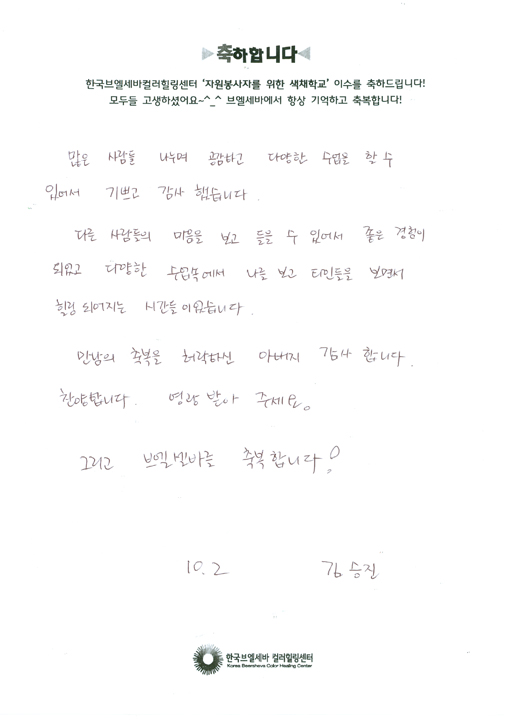 축하합니다
한국브엘세바컬러힐링센터 '자원봉사자를 위한 색채학교' 이수를 축하드립니다!
모두들 고생하셨어요~^_^ 브엘세바에서 항상 기억하고 축복합니다!
많은 사람들 나누며 공감하고 다양한 수업을 할 수
있어서 기쁘고 감사 했습니다.
다른 사람들의 마음을 보고 들을 수 있어서 좋은 경험이
되었고 다양한 수업속에서 나를 보고 타인들을 보면서
힐링 되어지는 시간들이었습니다.
만남의 축복을 허락하신 아버지 감사 합니다.
찬양합니다. 영광 받아 주세요.
그리고 브엘세바를 축복합니다!
10.2 김승진
한국브엘세바 컬러힐링센터
Korea Beersheva Color Healing Center